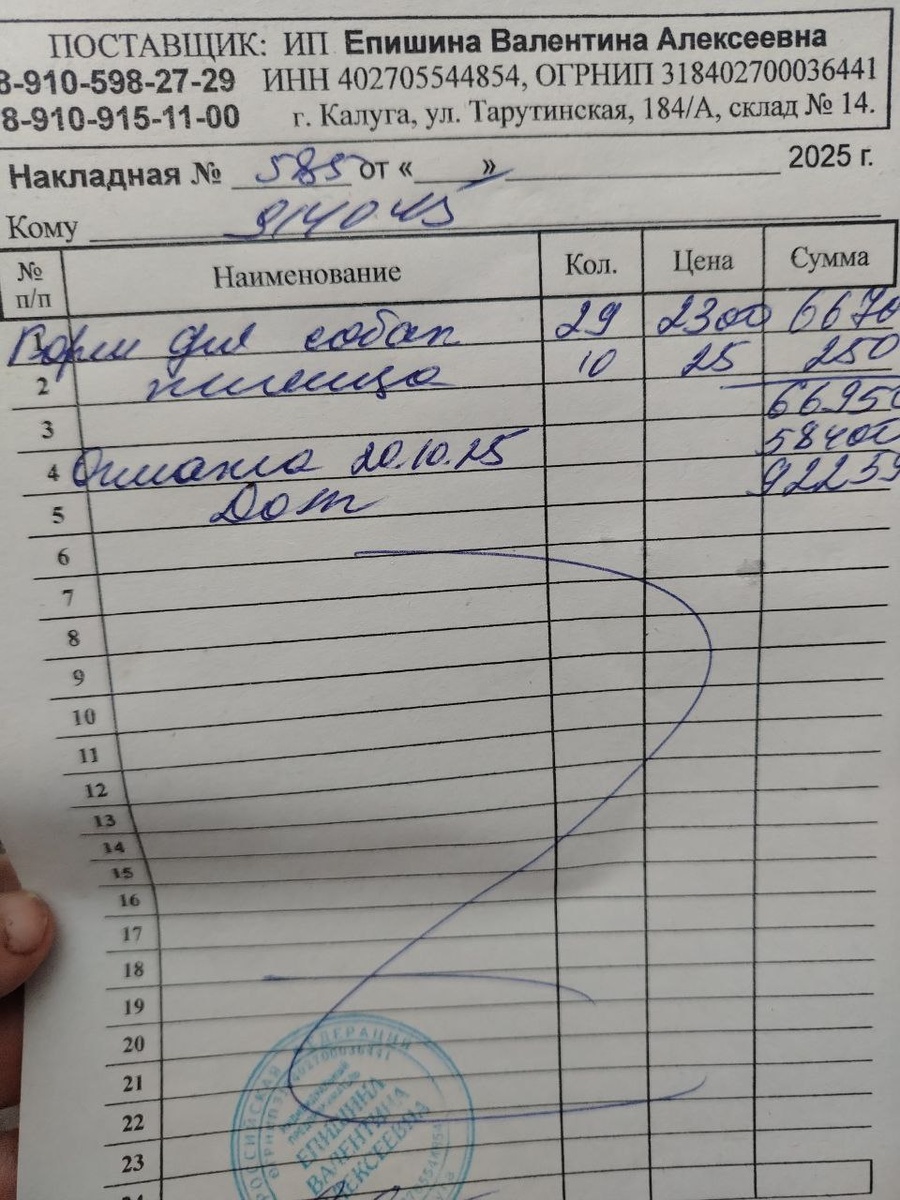 ПОСТАВЩИК: ИП Епишина Валентина Алексеевна
8-910-598-27-29 ИНН 402705544854, ОГРНИП 318402700036441
8-910-915-11-00 г. Калуга, ул. Тарутинская, 184/А, склад № 14.
Накладная № 585 от « » 2025 г.
Кому
№ п/п Наименование Кол. Цена Сумма
1 Корм для собак 29 2300 6670
2 пшеница 10 25 250
3 6695
4 Оплата 20.10.25 5840
5 Долг 9225
6
7
8
9
10
11
12
13
14
15
16
17
18
19
20
21
22
23
24
РОССИЙСКАЯ ФЕДЕРАЦИЯ
ЕПИШИНА
ВАЛЕНТИНА
АЛЕКСЕЕВНА